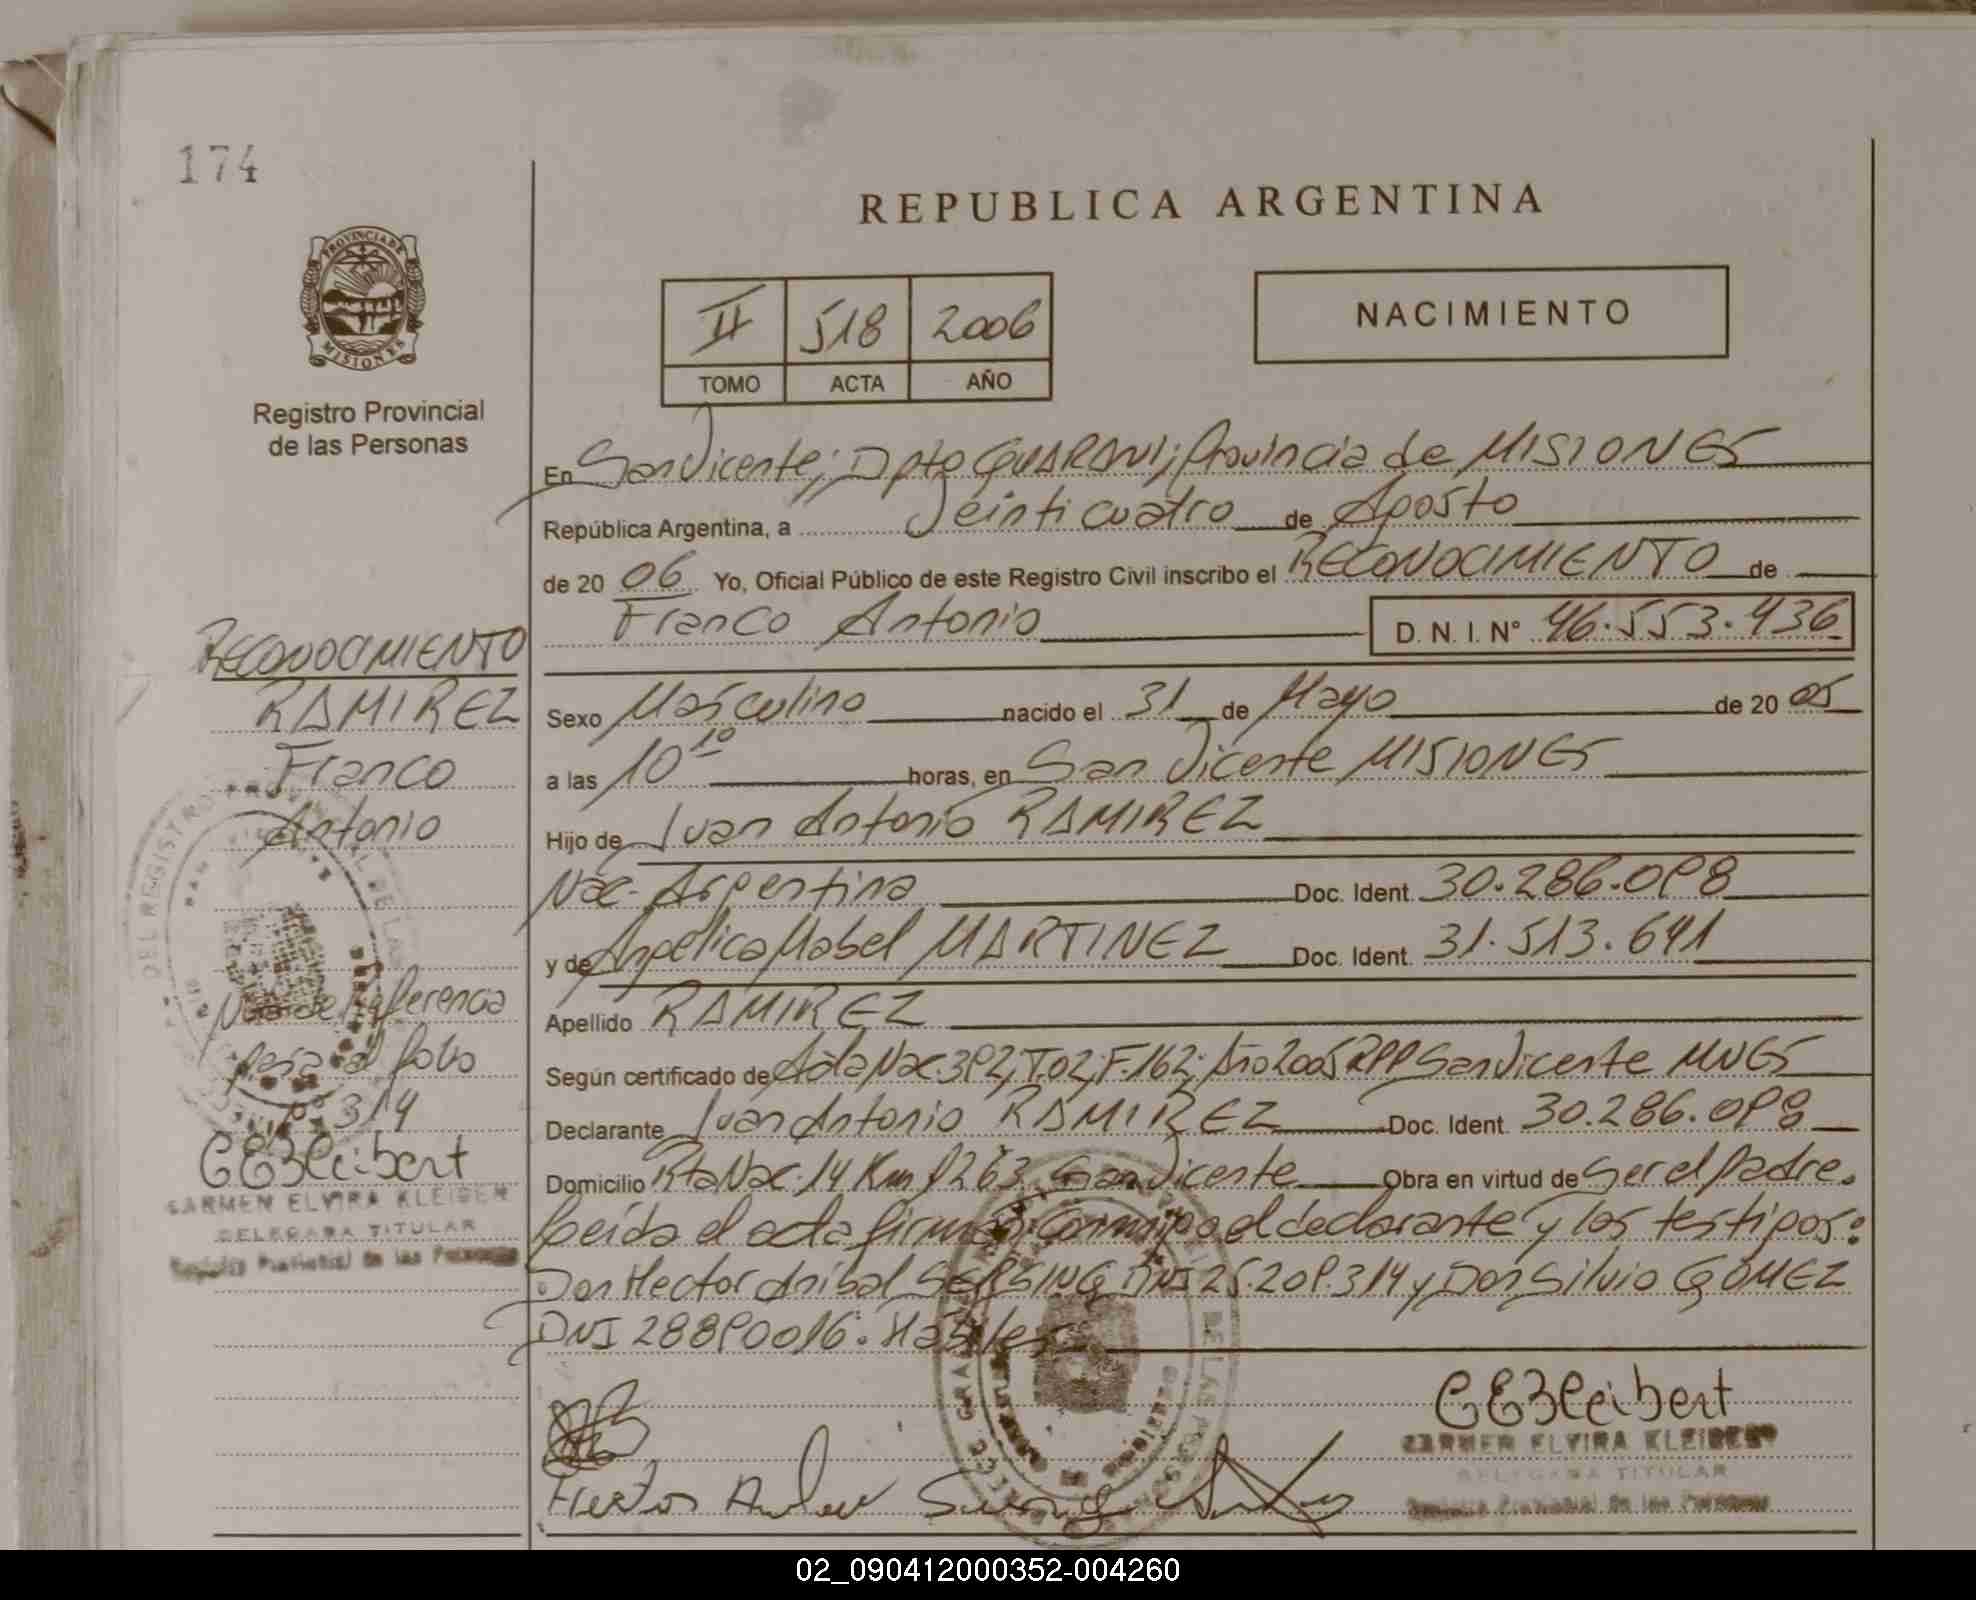 174
REPUBLICA ARGENTINA
PROVINCIA DE
MISIONES
Registro Provincial
de las Personas
II 518 2006
TOMO ACTA AÑO
NACIMIENTO
En San Vicente; Dpto GUARANI; Provincia de MISIONES
República Argentina, a Veinticuatro de Agosto
de 20 06 Yo, Oficial Público de este Registro Civil inscribo el RECONOCIMIENTO de
Franco Antonio D.N.I. Nº 46.553.436
RECONOCIMIENTO
RAMIREZ
Franco
Antonio
Sexo Masculino nacido el 31 de Mayo de 20 05
a las 10 10 horas, en San Vicente MISIONES
Hijo de Juan Antonio RAMIREZ
Nac. Argentina Doc. Ident. 30.286.098
y de Angelica Mabel MARTINEZ Doc. Ident. 31.513.641
Apellido RAMIREZ
Según certificado de Acta Nac. 392; T.02; F.162; Año 2005 RPP San Vicente MNES
Declarante Juan Antonio RAMIREZ Doc. Ident. 30.286.098
Domicilio Rta Nac. 14 Km 1263 San Vicente Obra en virtud de Ser el Padre.
Leída el acta firman conmigo el declarante y los testigos:
Don Hector Anibal SERSING DNI 25.209.314 y Don Silvio GOMEZ
DNI 28890016. Habiles
Nota de Referencia
al folio
nº 314
CEKleibert
CARMEN ELVIRA KLEIBERT
DELEGADA TITULAR
Registro Provincial de las Personas
CEKleibert
CARMEN ELVIRA KLEIBERT
DELEGADA TITULAR
Registro Provincial de las Personas
02_090412000352-004260